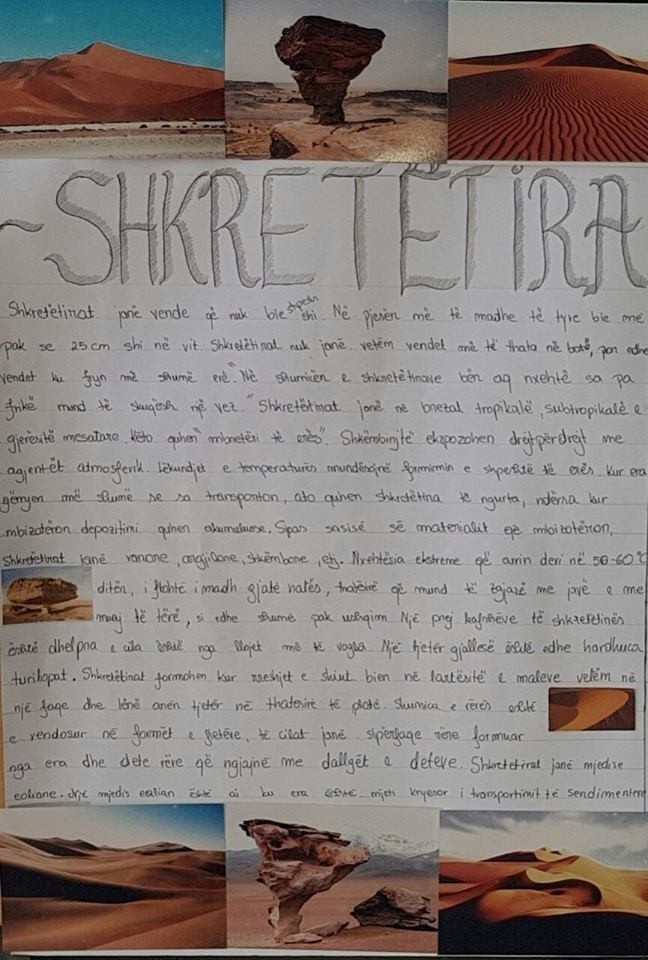 ~SHKRETËTIRA
Shkretëtirat janë vende që nuk bie shpesh shi. Në pjesën më të madhe të tyre bie më
pak se 25 cm shi në vit. Shkretëtirat nuk janë vetëm vendet më të thata në botë, por edhe
vendet ku fryn më shumë erë. "Në shumicën e shkretëtirave bën aq nxehtë sa pa
frikë mund të skuqësh një vez." Shkretëtirat janë në brezat tropikalë, subtropikalë e
gjerësitë mesatare. Këto quhen "mbretëri të erës". Shkëmbinjtë ekspozohen drejtpërdrejt me
agjentët atmosferik. Lëkundjet e temperaturës mundësojnë formimin e shpejtë të erës. Kur era
gërryen më shumë se sa transporton, ato quhen shkretëtira të ngurta, ndërsa kur
mbizotëron depozitimi quhen akumuluese. Sipas sasisë së materialit që mbizotëron,
Shkretëtirat janë ranore, argjilore, shkëmbore, etj. Nxehtësia ekstreme që arrin deri në 50-60°C
ditën, i ftohtë i madh gjatë natës, thatësirë që mund të zgjasë me javë e me
muaj të tërë, si edhe shumë pak ushqim. Një prej kafshëve të shkretëtirës
është dhelpra e cila është nga llojet më të vogla. Një tjetër gjallesë është edhe hardhuca
turilopat. Shkretëtirat formohen kur rreshjet e shiut bien në lartësitë e maleve vetëm në
një faqe dhe lënë anën tjetër në thatësirë të plotë. Shumica e rërës është
e vendosur në formët e fletëve, të cilat janë sipërfaqe rëre formuar
nga era dhe dete rëre që ngjajnë me dallgët e deteve. Shkretëtirat janë mjedise
eoliane. Një mjedis eolian është ai ku era është mjeti kryesor i transportimit të sendimenteve